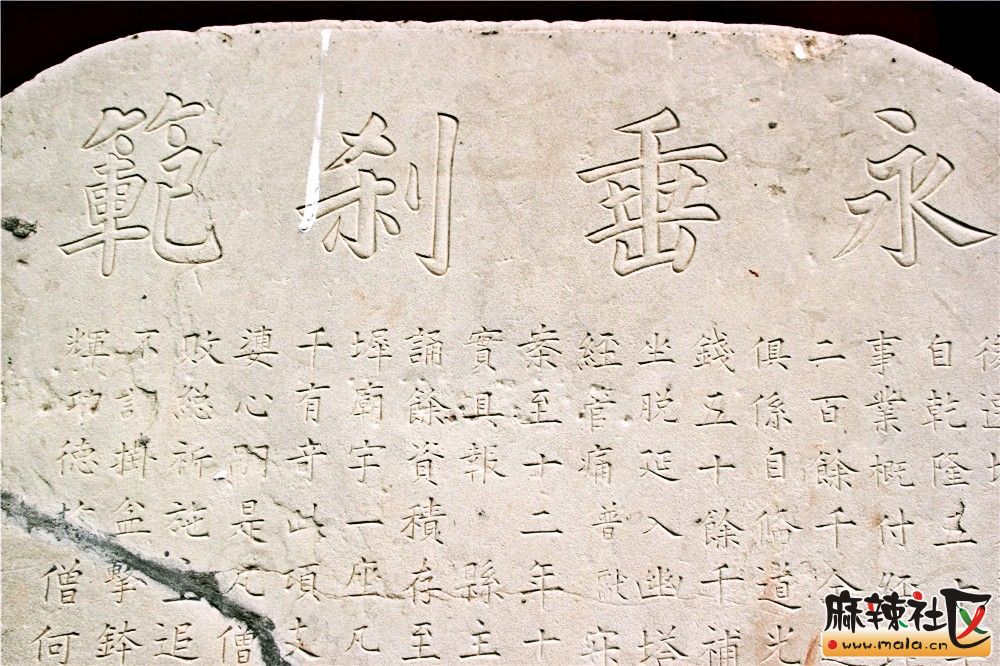 永垂刹範
自乾隆
事業概付經
二百餘千
俱係自脩道光
錢五十餘千補
坐脱延入幽塔
痛普
至十二年十
實具報縣主
誦餘資積存至
墀廟宇一座凡
千有奇此項支
婆心嗣是凡僧
敗祈施主追
不許掛盆擊鉢
輝功德僧何
麻辣社区
www.mala.cn